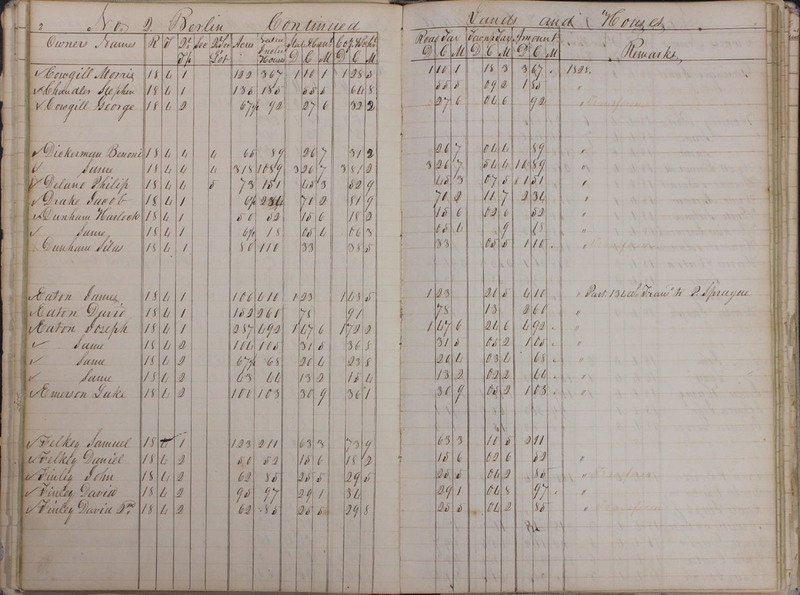 2 No. 2 Berlin Continued Lands and Houses
Owners Names R T Sec Lot Acres Houses D C M D C M Road Tax Amount D C M D C M D C M Remarks
Cowgill Morris 18 4 1 122 367 1 10 1 1 28 5 1 10 1 18 3 367 1828.
Chandler Stephen 18 4 1 135 185 55 5 64 8 55 5 09 2 185 "
Cowgill George 18 4 2 67½ 92 27 6 32 2 27 6 04 6 92 "
Dickerman Benoni 18 4 4 4 65 89 26 7 31 2 26 7 04 4 89 "
Same 18 4 4 4 318 1089 3 26 7 3 81 2 3 26 7 54 4 1089 "
Delano Philip 18 4 4 5 73 151 45 3 52 9 45 3 07 5 151 "
Drake Jacob 18 4 1 234 70 2 81 9 70 2 11 7 234 "
Dunham Harlock 18 4 1 50 52 15 6 18 2 15 6 02 6 52 "
Same 18 4 1 18 05 4 06 3 05 4 9 18 "
Dunham Silas 18 4 1 80 110 33 38 5 33 05 5 110 "
Eaton James 18 4 1 106 410 1 23 1 43 5 1 23 20 5 410 " Part 13 to P. Sprague
Eaton David 18 4 1 152 260 78 91 78 13 260 "
Eaton Joseph 18 4 1 287 492 1 47 6 1 72 2 1 47 6 24 6 492 "
Same 18 4 2 104 105 31 5 36 8 31 5 05 2 105 "
Same 18 4 2 67½ 68 20 4 23 8 20 4 03 4 68 "
Same 18 4 2 43 44 13 2 15 4 13 2 02 2 44 "
Emerson Luke 18 4 2 100 103 30 9 36 1 30 9 05 2 103 "
Filkey Samuel 18 4 1 123 211 63 3 73 9 63 3 10 5 211
Filkey Daniel 18 4 2 50 52 15 6 18 2 15 6 02 6 52 "
Finley John 18 4 2 62 85 25 5 29 5 25 5 04 2 85 "
Finley David 18 4 2 95 97 29 1 34 29 1 04 8 97 "
Finley David 2nd 18 4 2 62 85 25 5 29 8 25 5 04 2 85 "